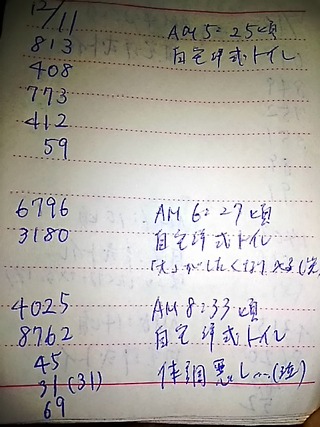 12/11
813 AM 5:25頃
408 自宅洋式トイレ
773
412
59
6796 AM 6:27頃
3180 自宅洋式トイレ
「大」がしたくなり
4025 AM 8:33頃
8762 自宅洋式トイレ
45
31(31) 体調悪し...(泣)
69